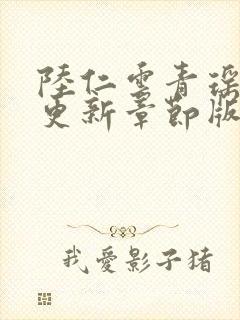 陸仁雲青瑶
更新章節版
我愛影子猪